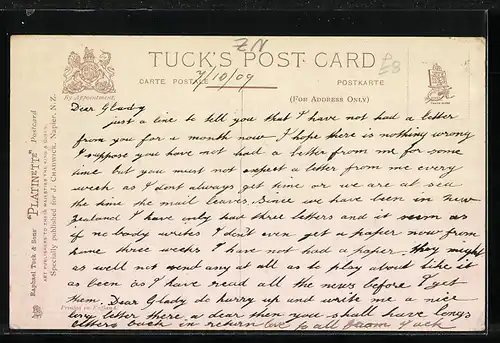 ZN
TUCK'S POST CARD
CARTE POSTALE
POSTKARTE
7/10/09
(FOR ADDRESS ONLY)
By Appointment.
Raphael Tuck & Sons' "PLATINETTE" Postcard
ART PUBLISHERS TO THEIR MAJESTIES THE KING & QUEEN.
Specially published for J. CHADWICK, Napier, N.Z.
Printed in England.
Dear Glady
just a line to tell you that I have not had a letter
from you for a month now I hope there is nothing wrong
I suppose you have not had a letter from me for some
time but you must not expect a letter from me every
week as I dont always get time or we are at sea
the time the mail leaves. Since we have been in New
Zealand I have only had three letters and it seem as
if no body writes I don't even get a paper now from
home three weeks I have not had a paper. they might
as well not send any at all as to play about like it
as been as I have read all the news before I get
them. Dear Glady do hurry up and write me a nice
long letter there a dear then you shall have longs
letters back in return love to all Jack